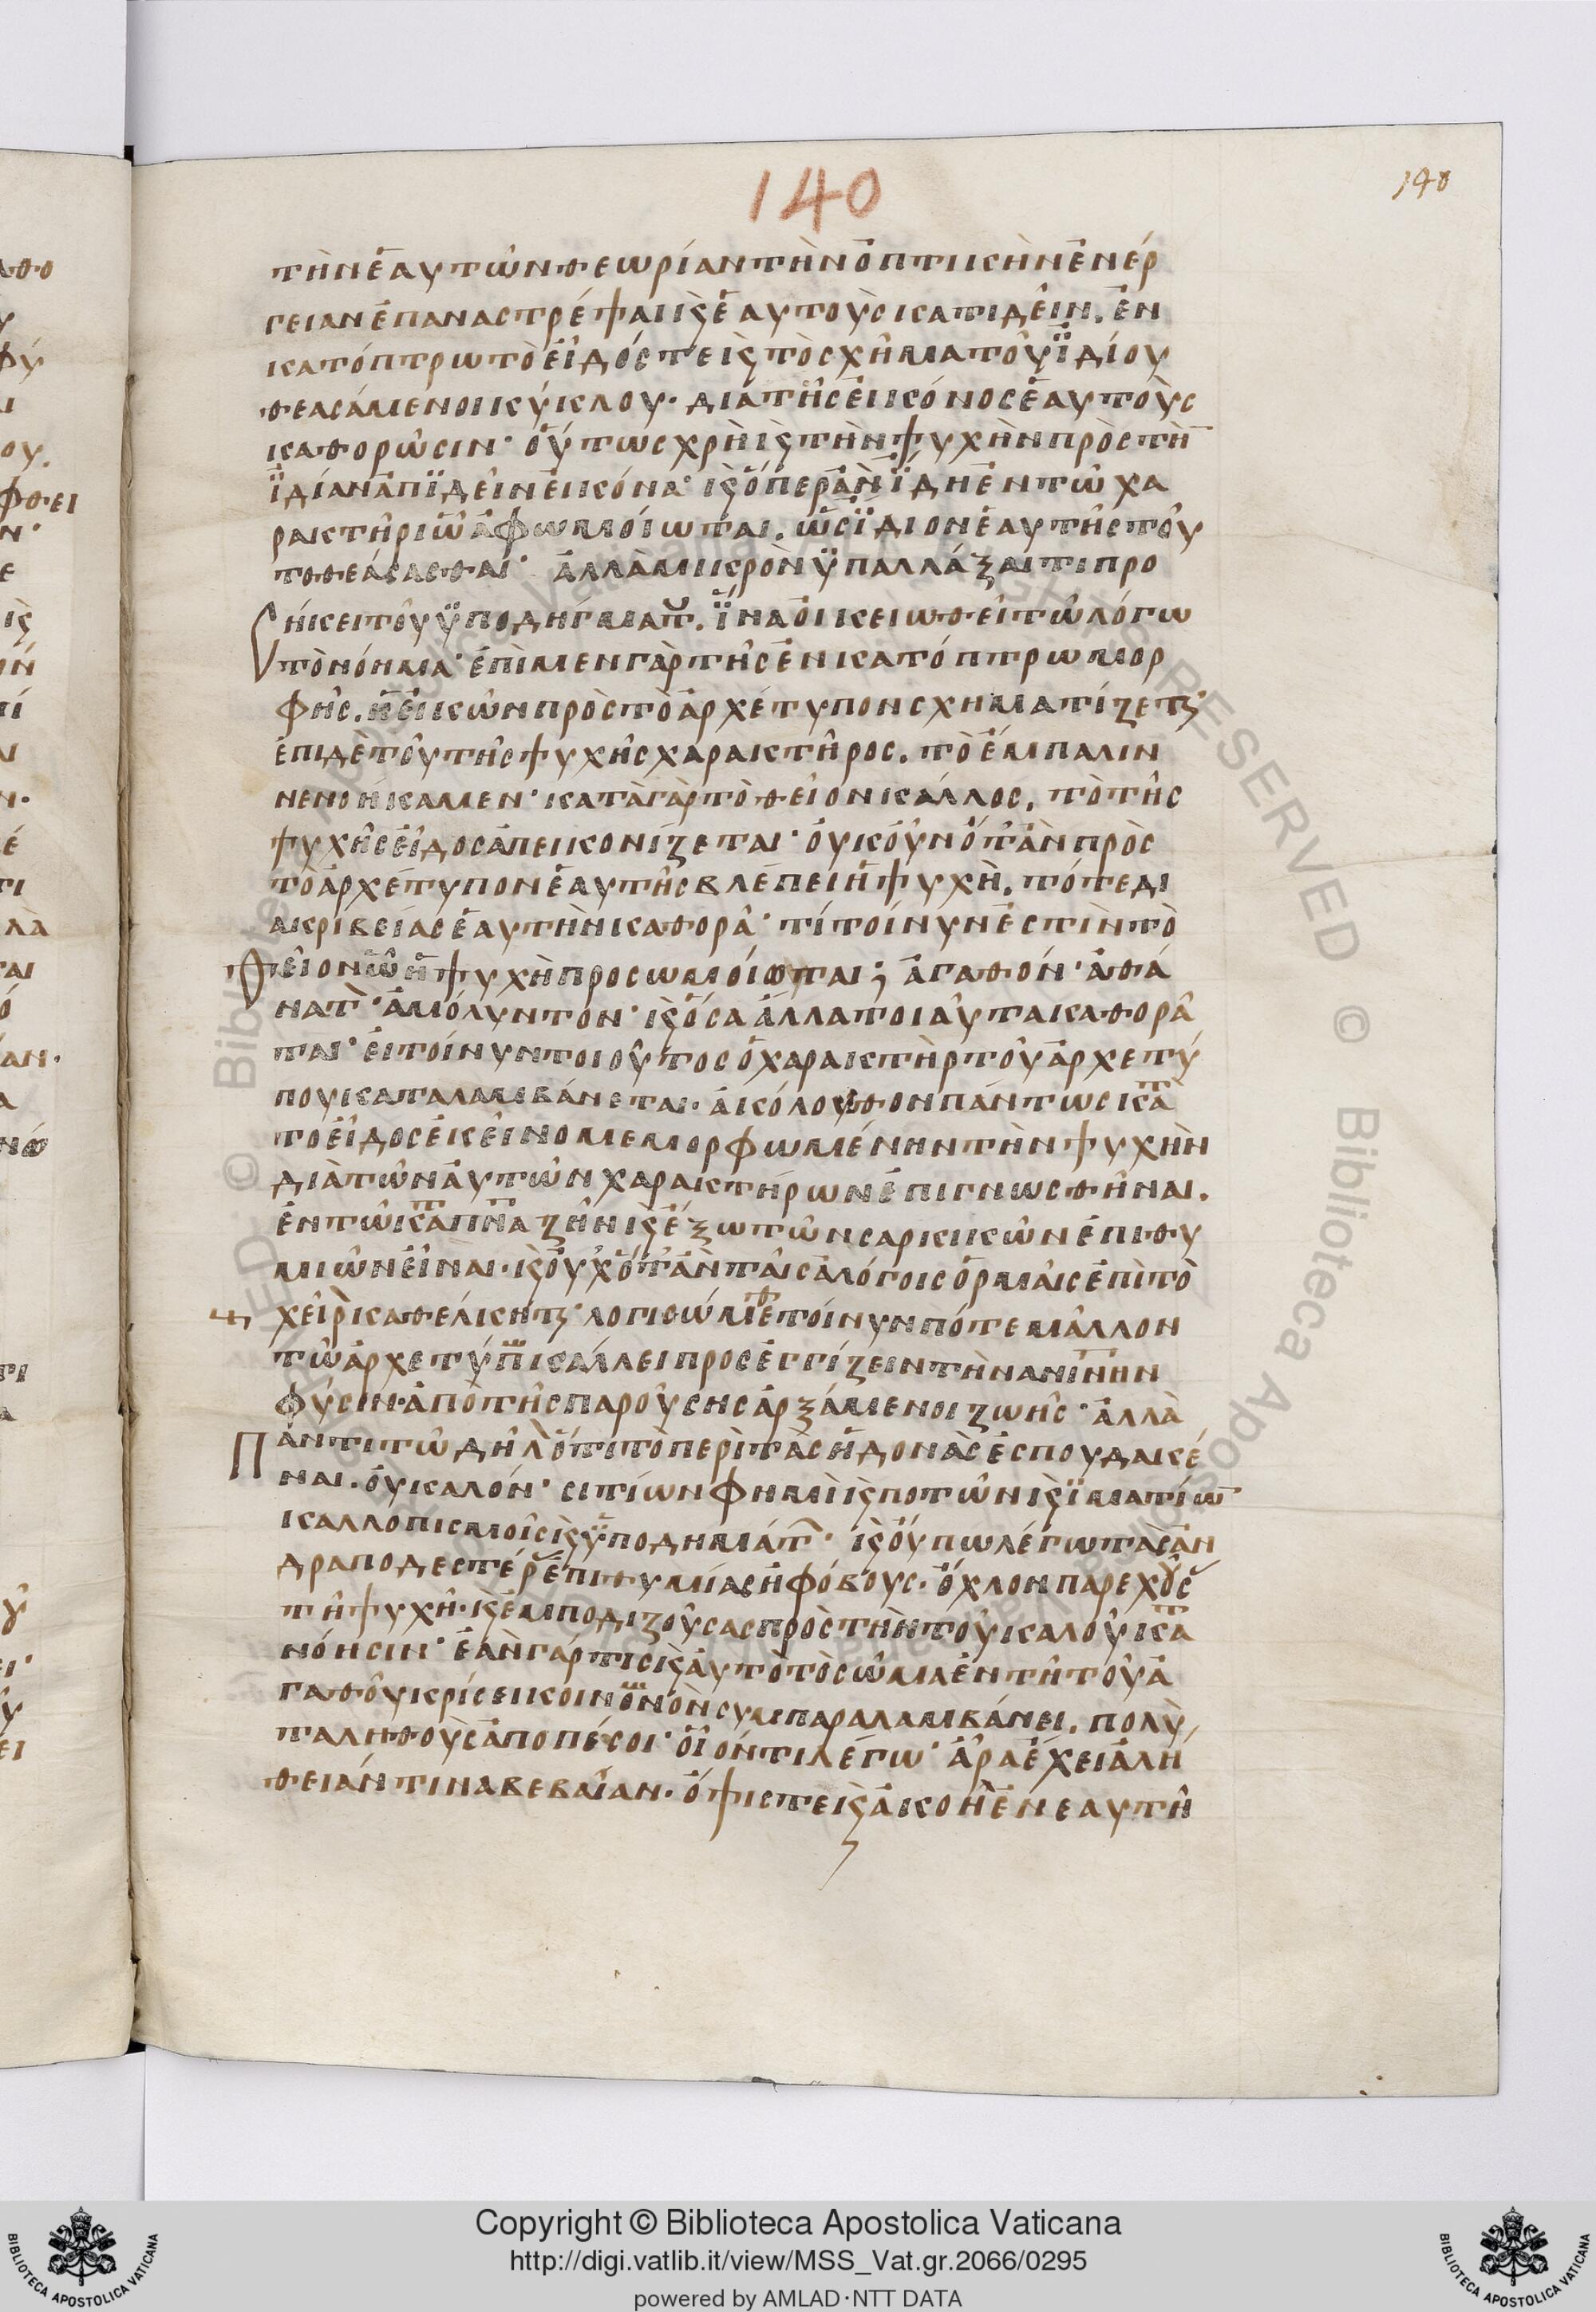 140
140
τὴν ἑαυτῶν θεωρίαν τὴν ὀπτικὴν ἐνέρ
γειαν ἐπαναστρέψαι ϗ ἑαυτοὺς κατιδεῖν. ἐν
κατόπτρω τὸ εἶδός τε ϗ τὸ σχῆμα τοῦ ϊδίου
θεασάμενοι κύκλου· διὰ τῆς εἰκόνος ἑαυτοὺς
καθορῶσιν· οὕτως χρὴ ϗ τὴν ψυχὴν πρὸς τὴ̄
ϊδίαν ἀπϊδεῖν εἰκόνα· ϗ ὅπερ ἂν ϊδη ἐν τῶ χα
ρακτῆρι ὧ ἀφωμοίωται. ὡς ϊδιον ἑαυτῆς τοῦ
το θεάσασθαι· ἀλλὰ μικρὸν ϋπαλλάξαι τι προ
σήκει τοῦ ϋποδήγματ. ϊνα οἰκειωθεῖ τῶ λόγω
τὸ νόημα· ἐπὶ μεν γὰρ τῆς ἐν κατόπτρω μορ
φῆς. ἡ εἰκὼν πρὸς τὸ ἀρχέτυπον σχηματίζετ
ἐπι δε τοῦ τῆς ψυχῆς χαρακτῆρος. τὸ ἔμπαλιν
νενοήκαμεν· κατὰ γὰρ τὸ θεῖον κάλλος. τὸ τῆς
ψυχῆς εἶδος ἀπεικονίζεται· οὐκοῦν ὅταν πρὸς
τὸ ἀρχέτυπον ἑαυτῆς βλέπει ἡ ψυχὴ. τότε δι
ακριβείας ἑαυτὴν καθορᾶ· τί τοίνυν ἐστὶν τὸ
θεῖον ὧ ἡ ψυχὴ προσωμοίωται; ἀγαθόν· ἀθά
νατ· ἀμόλυντον· ϗ ὅσα ἄλλα τοιαῦτα καθορᾶ
ται· εἰ τοίνυν τοιοῦτος ὁ χαρακτὴρ τοῦ ἀρχετύ
που καταλαμβάνεται. ἀκόλουθον πάντως κατ
το εἶδος ἐκεῖνο μεμορφωμένην τὴν ψυχὴν
διὰ τῶν αὐτῶν χαρακτήρων ἐπιγνωσθῆναι.
ἐν τῶ κατ πνα ζῆν ϗ ἔξω τῶν σαρκικῶν ἐπιθυ
μιῶν εἶναι. ϗ οὐχ ὅταν ταῖς ἀλόγοις ὁρμαῖς ἐπὶ τὸ
χεῖρ καθέλκητ· λογισώμεθ τοίνυν πότε μᾶλλον
τῶ ἀρχετύπ κάλλει προσεγγίζειν τὴν ανινην
φύσιν. ἀπὸ τῆς παρούσης ἀρξάμενοι ζωῆς· ἀλλὰ
παντί τω δῆλ ὅτι τὸ περὶ τὰς ἡδονὰς ἐσπουδακέ
ναι. οὐ καλόν· σιτίων φημὶ ϗ ποτῶν ϗ ϊματίω̄
καλλοπισμοῖς ϗ ϋποδημάτ· ϗ οὔπω λέγω τὰς ἀν
δραποδεστέρ ἐπιθυμίας ἢ φόβους. ὄχλον παρεχούσ
τῆ ψυχῆ. ϗ ἐμποδιζούσας πρὸς τὴν τοῦ καλοῦ κατ
νόησιν· ἐὰν γάρ τις ϗ αὐτὸ τὸ σῶμα ἐν τῆ τοῦ ἀ
γαθοῦ κρίσει κοινωνὸν συμπαραλαμβάνει. πολὺ
τ αληθοὺς ἀποπέσοι· οἷόν τι λέγω· ἆρα ἔχει ἀλή
θειάν τινα βεβαίαν. ὄψις τε ϗ ἀκοὴ ἐν εαυτῆ
Copyright © Biblioteca Apostolica Vaticana
http://digi.vatlib.it/view/MSS_Vat.gr.2066/0295
powered by AMLAD·NTT DATA
BIBLIOTECA APOSTOLICA VATICANA
BIBLIOTECA APOSTOLICA VATICANA